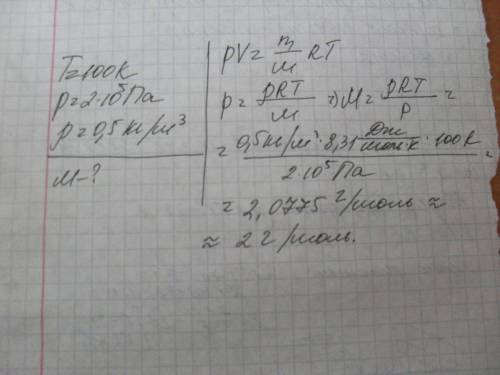 T=100К
p=2·10⁵Па
ρ=0,5 кг/м³
M-?
pV= m/M RT
p= ρRT/M ⇒ M= ρRT/p =
= 0,5кг/м³·8,31 Дж/моль·К ·100К / 2·10⁵Па =
= 2,0775 г/моль ≈
≈ 2 г/моль.